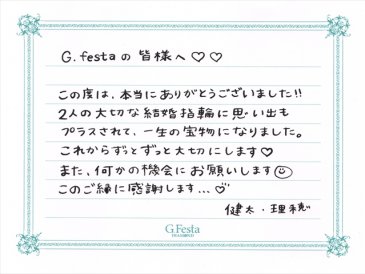 G.festaの皆様へ♡♡
この度は、本当にありがとうございました!!
2人の大切な結婚指輪に思い出も
プラスされて、一生の宝物になりました。
これからずっとずっと大切にします♡
また、何かの機会にお願いします☺
このご縁に感謝します…♡
健太・理穂
G.Festa